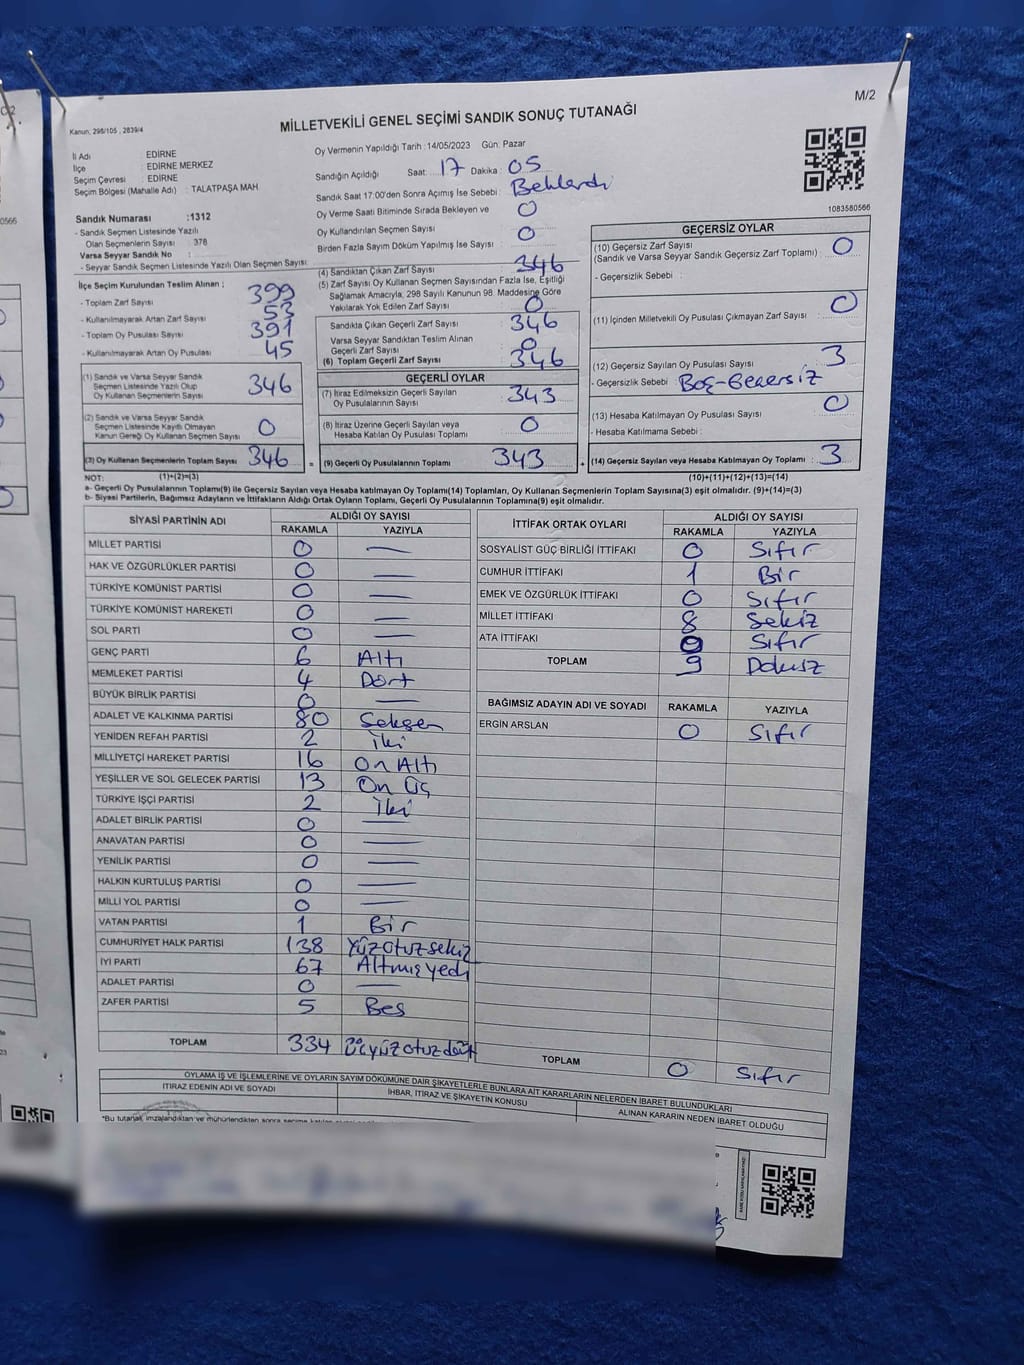 M/2
Kanun; 298/105 , 2839/4
MİLLETVEKİLİ GENEL SEÇİMİ SANDIK SONUÇ TUTANAĞI
İl Adı : EDİRNE
İlçe : EDİRNE MERKEZ
Seçim Çevresi : EDİRNE
Seçim Bölgesi (Mahalle Adı) : TALATPAŞA MAH.
Oy Vermenin Yapıldığı Tarih :14/05/2023 Gün: Pazar
Sandığın Açıldığı Saat 17 Dakika : 05
Sandık Saat 17:00'den Sonra Açımış İse Sebebi : Beklendi
Oy Verme Saati Bitiminde Sırada Bekleyen ve 0
Oy Kullandırılan Seçmen Sayısı : 0
Birden Fazla Sayım Döküm Yapılmış İse Sayısı :
1083580566
Sandık Numarası :1312
- Sandık Seçmen Listesinde Yazılı
Olan Seçmenlerin Sayısı : 378
Varsa Seyyar Sandık No :
- Seyyar Sandık Seçmen Listesinde Yazılı Olan Seçmen Sayısı:
İlçe Seçim Kurulundan Teslim Alınan ;
- Toplam Zarf Sayısı 399
- Kullanılmayarak Artan Zarf Sayısı 53
- Toplam Oy Pusulası Sayısı 391
- Kullanılmayarak Artan Oy Pusulası 45
(1) Sandık ve Varsa Seyyar Sandık
Seçmen Listesinde Yazılı Olup
Oy Kullanan Seçmenlerin Sayısı 346
(2) Sandık ve Varsa Seyyar Sandık
Seçmen Listesinde Kayıtlı Olmayan
Kanun Gereği Oy Kullanan Seçmen Sayısı 0
(3) Oy Kullanan Seçmenlerin Toplam Sayısı 346
(4) Sandıktan Çıkan Zarf Sayısı 346
(5) Zarf Sayısı Oy Kullanan Seçmen Sayısından Fazla İse, Eşitliği
Sağlamak Amacıyla, 298 Sayılı Kanunun 98. Maddesine Göre
Yakılarak Yok Edilen Zarf Sayısı 0
Sandıkta Çıkan Geçerli Zarf Sayısı 346
Varsa Seyyar Sandıktan Teslim Alınan
Geçerli Zarf Sayısı 0
(6) Toplam Geçerli Zarf Sayısı 346
GEÇERLİ OYLAR
(7) İtiraz Edilmeksizin Geçerli Sayılan
Oy Pusulalarının Sayısı 343
(8) İtiraz Üzerine Geçerli Sayılan veya
Hesaba Katılan Oy Pusulası Toplamı 0
= (9) Geçerli Oy Pusulalarının Toplamı 343
GEÇERSİZ OYLAR
(10) Geçersiz Zarf Sayısı
(Sandık ve Varsa Seyyar Sandık Geçersiz Zarf Toplamı) : 0
- Geçersizlik Sebebi :
(11) İçinden Milletvekili Oy Pusulası Çıkmayan Zarf Sayısı : 0
(12) Geçersiz Sayılan Oy Pusulası Sayısı 3
- Geçersizlik Sebebi : Boş-Geçersiz
(13) Hesaba Katılmayan Oy Pusulası Sayısı : 0
- Hesaba Katılmama Sebebi :
+ (14) Geçersiz Sayılan veya Hesaba Katılmayan Oy Toplamı : 3
NOT: (1)+(2)=(3)
(10)+(11)+(12)+(13)=(14)
a- Geçerli Oy Pusulalarının Toplamı(9) ile Geçersiz Sayılan veya Hesaba katılmayan Oy Toplamı(14) Toplamları, Oy Kullanan Seçmenlerin Toplam Sayısına(3) eşit olmalıdır. (9)+(14)=(3)
b- Siyasi Partilerin, Bağımsız Adayların ve İttifakların Aldığı Ortak Oyların Toplamı, Geçerli Oy Pusulalarının Toplamına(9) eşit olmalıdır.
SİYASİ PARTİNİN ADI ALDIĞI OY SAYISI
RAKAMLA YAZIYLA
MİLLET PARTİSİ 0 —
HAK VE ÖZGÜRLÜKLER PARTİSİ 0 —
TÜRKİYE KOMÜNİST PARTİSİ 0 —
TÜRKİYE KOMÜNİST HAREKETİ 0 —
SOL PARTİ 0 —
GENÇ PARTİ 6 Altı
MEMLEKET PARTİSİ 4 Dört
BÜYÜK BİRLİK PARTİSİ 0 —
ADALET VE KALKINMA PARTİSİ 80 Seksen
YENİDEN REFAH PARTİSİ 2 İki
MİLLİYETÇİ HAREKET PARTİSİ 16 On Altı
YEŞİLLER VE SOL GELECEK PARTİSİ 13 On Üç
TÜRKİYE İŞÇİ PARTİSİ 2 İki
ADALET BİRLİK PARTİSİ 0 —
ANAVATAN PARTİSİ 0 —
YENİLİK PARTİSİ 0 —
HALKIN KURTULUŞ PARTİSİ 0 —
MİLLİ YOL PARTİSİ 0 —
VATAN PARTİSİ 1 Bir
CUMHURİYET HALK PARTİSİ 138 Yüzotuzsekiz
İYİ PARTİ 67 Altmışyedi
ADALET PARTİSİ 0 —
ZAFER PARTİSİ 5 Beş
TOPLAM 334 Üçyüzotuzdört
İTTİFAK ORTAK OYLARI ALDIĞI OY SAYISI
RAKAMLA YAZIYLA
SOSYALİST GÜÇ BİRLİĞİ İTTİFAKI 0 Sıfır
CUMHUR İTTİFAKI 1 Bir
EMEK VE ÖZGÜRLÜK İTTİFAKI 0 Sıfır
MİLLET İTTİFAKI 8 Sekiz
ATA İTTİFAKI 0 Sıfır
TOPLAM 9 Dokuz
BAĞIMSIZ ADAYIN ADI VE SOYADI RAKAMLA YAZIYLA
ERGİN ARSLAN 0 Sıfır
TOPLAM 0 Sıfır
OYLAMA İŞ VE İŞLEMLERİNE VE OYLARIN SAYIM DÖKÜMÜNE DAİR ŞİKAYETLERLE BUNLARA AİT KARARLARIN NELERDEN İBARET BULUNDUKLARI
İTİRAZ EDENİN ADI VE SOYADI
İHBAR, İTİRAZ VE ŞİKAYETİN KONUSU
ALINAN KARARIN NEDEN İBARET OLDUĞU